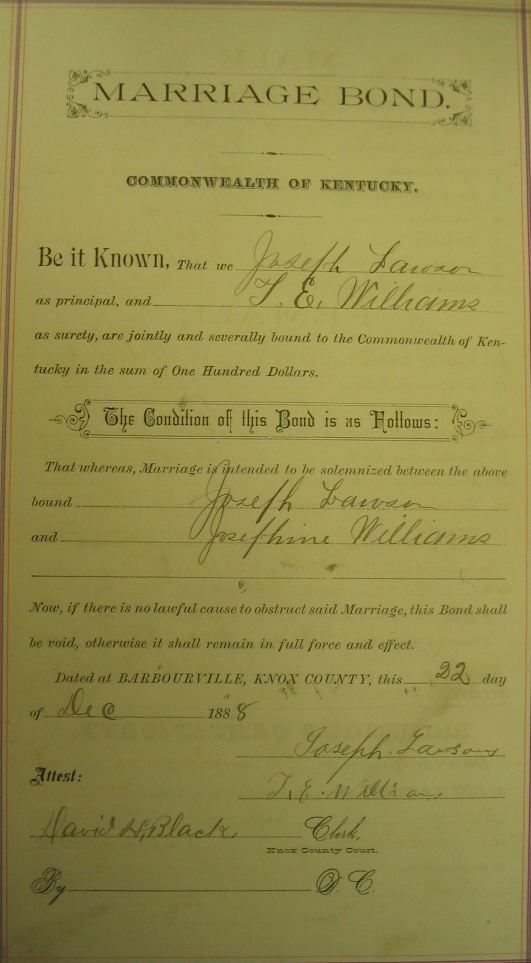 MARRIAGE BOND.
COMMONWEALTH OF KENTUCKY.
Be it Known, That we Joseph Lawson
as principal, and T. E. Williams
as surety, are jointly and severally bound to the Commonwealth of Ken-
tucky in the sum of One Hundred Dollars.
The Condition of this Bond is as Follows:
That whereas, Marriage is intended to be solemnized between the above
bound Joseph Lawson
and Josephine Williams
Now, if there is no lawful cause to obstruct said Marriage, this Bond shall
be void, otherwise it shall remain in full force and effect.
Dated at BARBOURVILLE, KNOX COUNTY, this 22 day
of Dec 1888
Joseph Lawson
Attest:
T. E. Williams
David H. Black, Clerk,
Knox County Court.
By D. C.